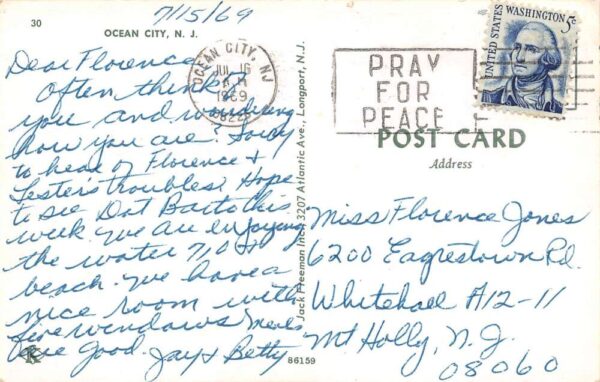 7/15/69
30
OCEAN CITY, N. J.
Dear Florence,
Often think of
you and wondering
how you are? Sorry
to hear of Florence &
Lester's troubles. Hope
to see Dot Barto this
week. We are enjoying
the water 710 &
beach. We have a
nice room with
five windows. Meals
are good. Jay & Betty
K
86159
Jack Freeman Inc. 3207 Atlantic Ave., Longport, N.J.
OCEAN CITY, NJ
JUL 16
1969
PRAY
FOR
PEACE
UNITED STATES
WASHINGTON 5c
POST CARD
Address
Miss Florence Jones
6200 Eayrestown Rd.
Whitehall A12-11
Mt Holly, N.J.
08060